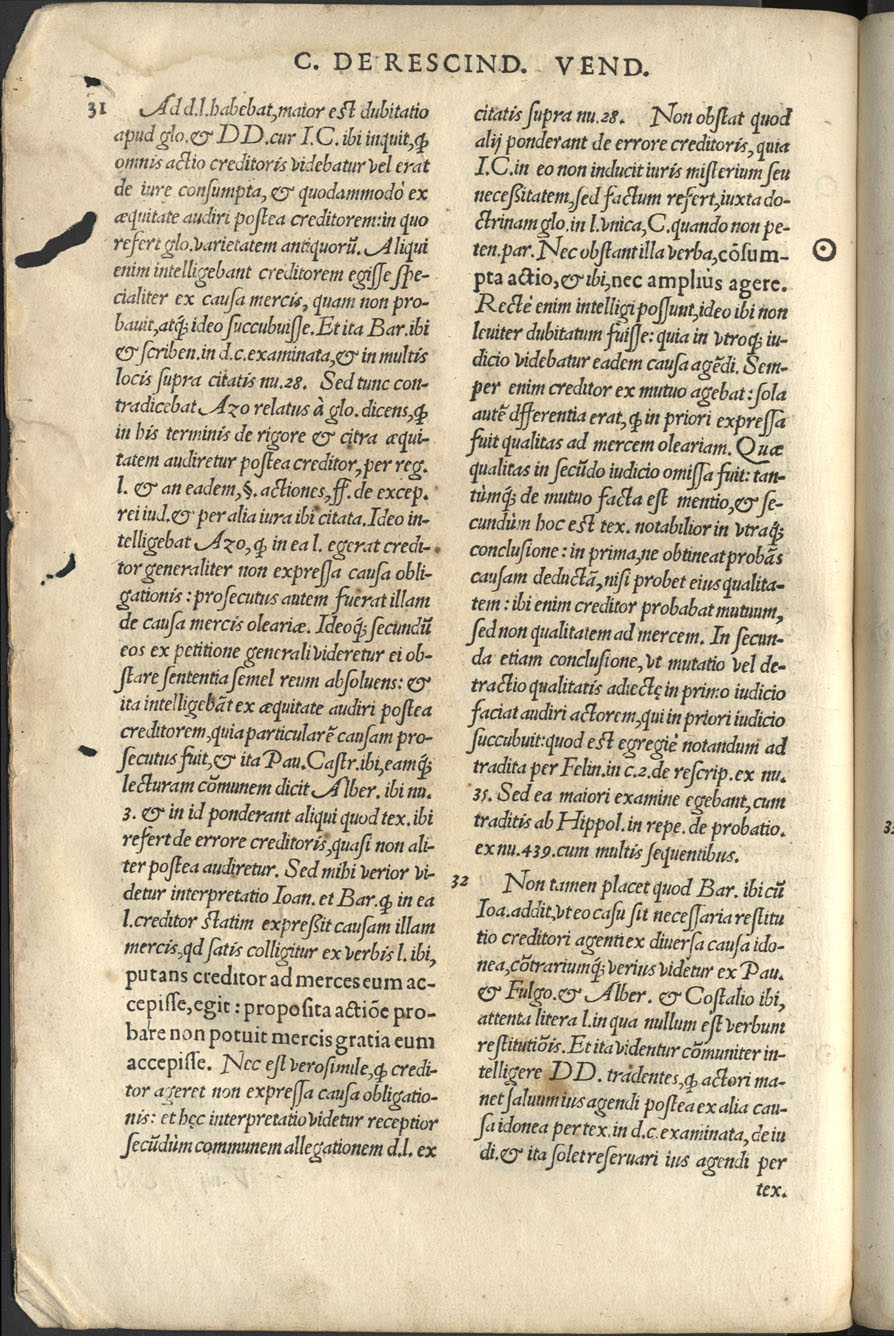 C. DE RESCIND. VEND.
31 Ad d.l.habebat,maior est dubitatio
apud glo.& DD.cur I.C.ibi inquit,ꝙ
omnis actio creditoris videbatur vel erat
de iure consumpta, & quodammodò ex
æquitate audiri postea creditorem:in quo
refert glo.varietatem antiquorũ. Aliqui
enim intelligebant creditorem egisse spe-
cialiter ex causa mercis, quam non pro-
bauit,atq; ideo succubuisse. Et ita Bar.ibi
& scriben.in d.c.examinata,& in multis
locis supra citatis nu.28. Sed tunc con-
tradicebat Azo relatus à glo.dicens,ꝙ
in his terminis de rigore & citra æqui-
tatem audiretur postea creditor, per reg.
l. & an eadem,§.actiones,ff.de excep.
rei iud.& per alia iura ibi citata. Ideo in-
telligebat Azo, ꝙ in ea l. egerat credi-
tor generaliter non expressa causa obli-
gationis : prosecutus autem fuerat illam
de causa mercis oleariæ. Ideoq; secundũ
eos ex petitione generali videretur ei ob-
stare sententia semel reum absoluens: &
ita intelligebãt ex æquitate audiri postea
creditorem,quia particularẽ causam pro-
secutus fuit,& ita Pau.Castr.ibi,eamq;
lecturam cõmunem dicit Alber. ibi nu.
3. & in id ponderant aliqui quod tex.ibi
refert de errore creditoris,quasi non ali-
ter postea audiretur. Sed mihi verior vi-
detur interpretatio Ioan. et Bar.ꝙ in ea
l.creditor statim expressit causam illam
mercis,qd satis colligitur ex verbis l. ibi,
putans creditor ad merces eum ac-
cepisse,egit : proposita actiõe pro-
bare non potuit mercis gratia eum
accepisse. Nec est verosimile,ꝙ credi-
tor ageret non expressa causa obligatio-
nis: et hęc interpretatio videtur receptior
secũdùm communem allegationem d.l. ex
citatis supra nu.28. Non obstat quod
alij ponderant de errore creditoris, quia
I.C.in eo non inducit iuris misterium seu
necessitatem,sed factum refert,iuxta do-
ctrinam glo.in l.vnica,C.quando non pe-
ten.par. Nec obstant illa verba,cõsum-
pta actio,& ibi,nec ampliùs agere.
Rectè enim intelligi possunt,ideo ibi non
leuiter dubitatum fuisse: quia in vtroq; iu-
dicio videbatur eadem causa agẽdi. Sem-
per enim creditor ex mutuo agebat : sola
autẽ dfferentia erat,ꝙ in priori expressa
fuit qualitas ad mercem oleariam. Quæ
qualitas in secũdo iudicio omissa fuit: tan-
tùmq; de mutuo facta est mentio,& se-
cundùm hoc est tex. notabilior in vtraq;
conclusione : in prima,ne obtineat probãs
causam deductã,nisi probet eius qualita-
tem : ibi enim creditor probabat mutuum,
sed non qualitatem ad mercem. In secun-
da etiam conclusione,vt mutatio vel de-
tractio qualitatis adiectę in primo iudicio
faciat audiri actorem,qui in priori iudicio
succubuit:quod est egregiè notandum ad
tradita per Felin.in c.2.de rescrip.ex nu.
35. Sed ea maiori examine egebant,cum
traditis ab Hippol.in repe.de probatio.
ex nu.439.cum multis sequentibus.
32 Non tamen placet quod Bar. ibi cũ
Ioa.addit,vt eo casu sit necessaria restitu
tio creditori agenti ex diuersa causa ido-
nea,cõtrariumq; verius videtur ex Pau.
& Fulgo.& Alber. & Costalio ibi,
attenta litera l.in qua nullum est verbum
restitutiõis. Et ita videntur cõmuniter in-
telligere DD. tradentes,ꝙ actori ma-
net saluum ius agendi postea ex alia cau-
sa idonea per tex.in d.c.examinata,de iu
di.& ita solet reseruari ius agendi per
tex.